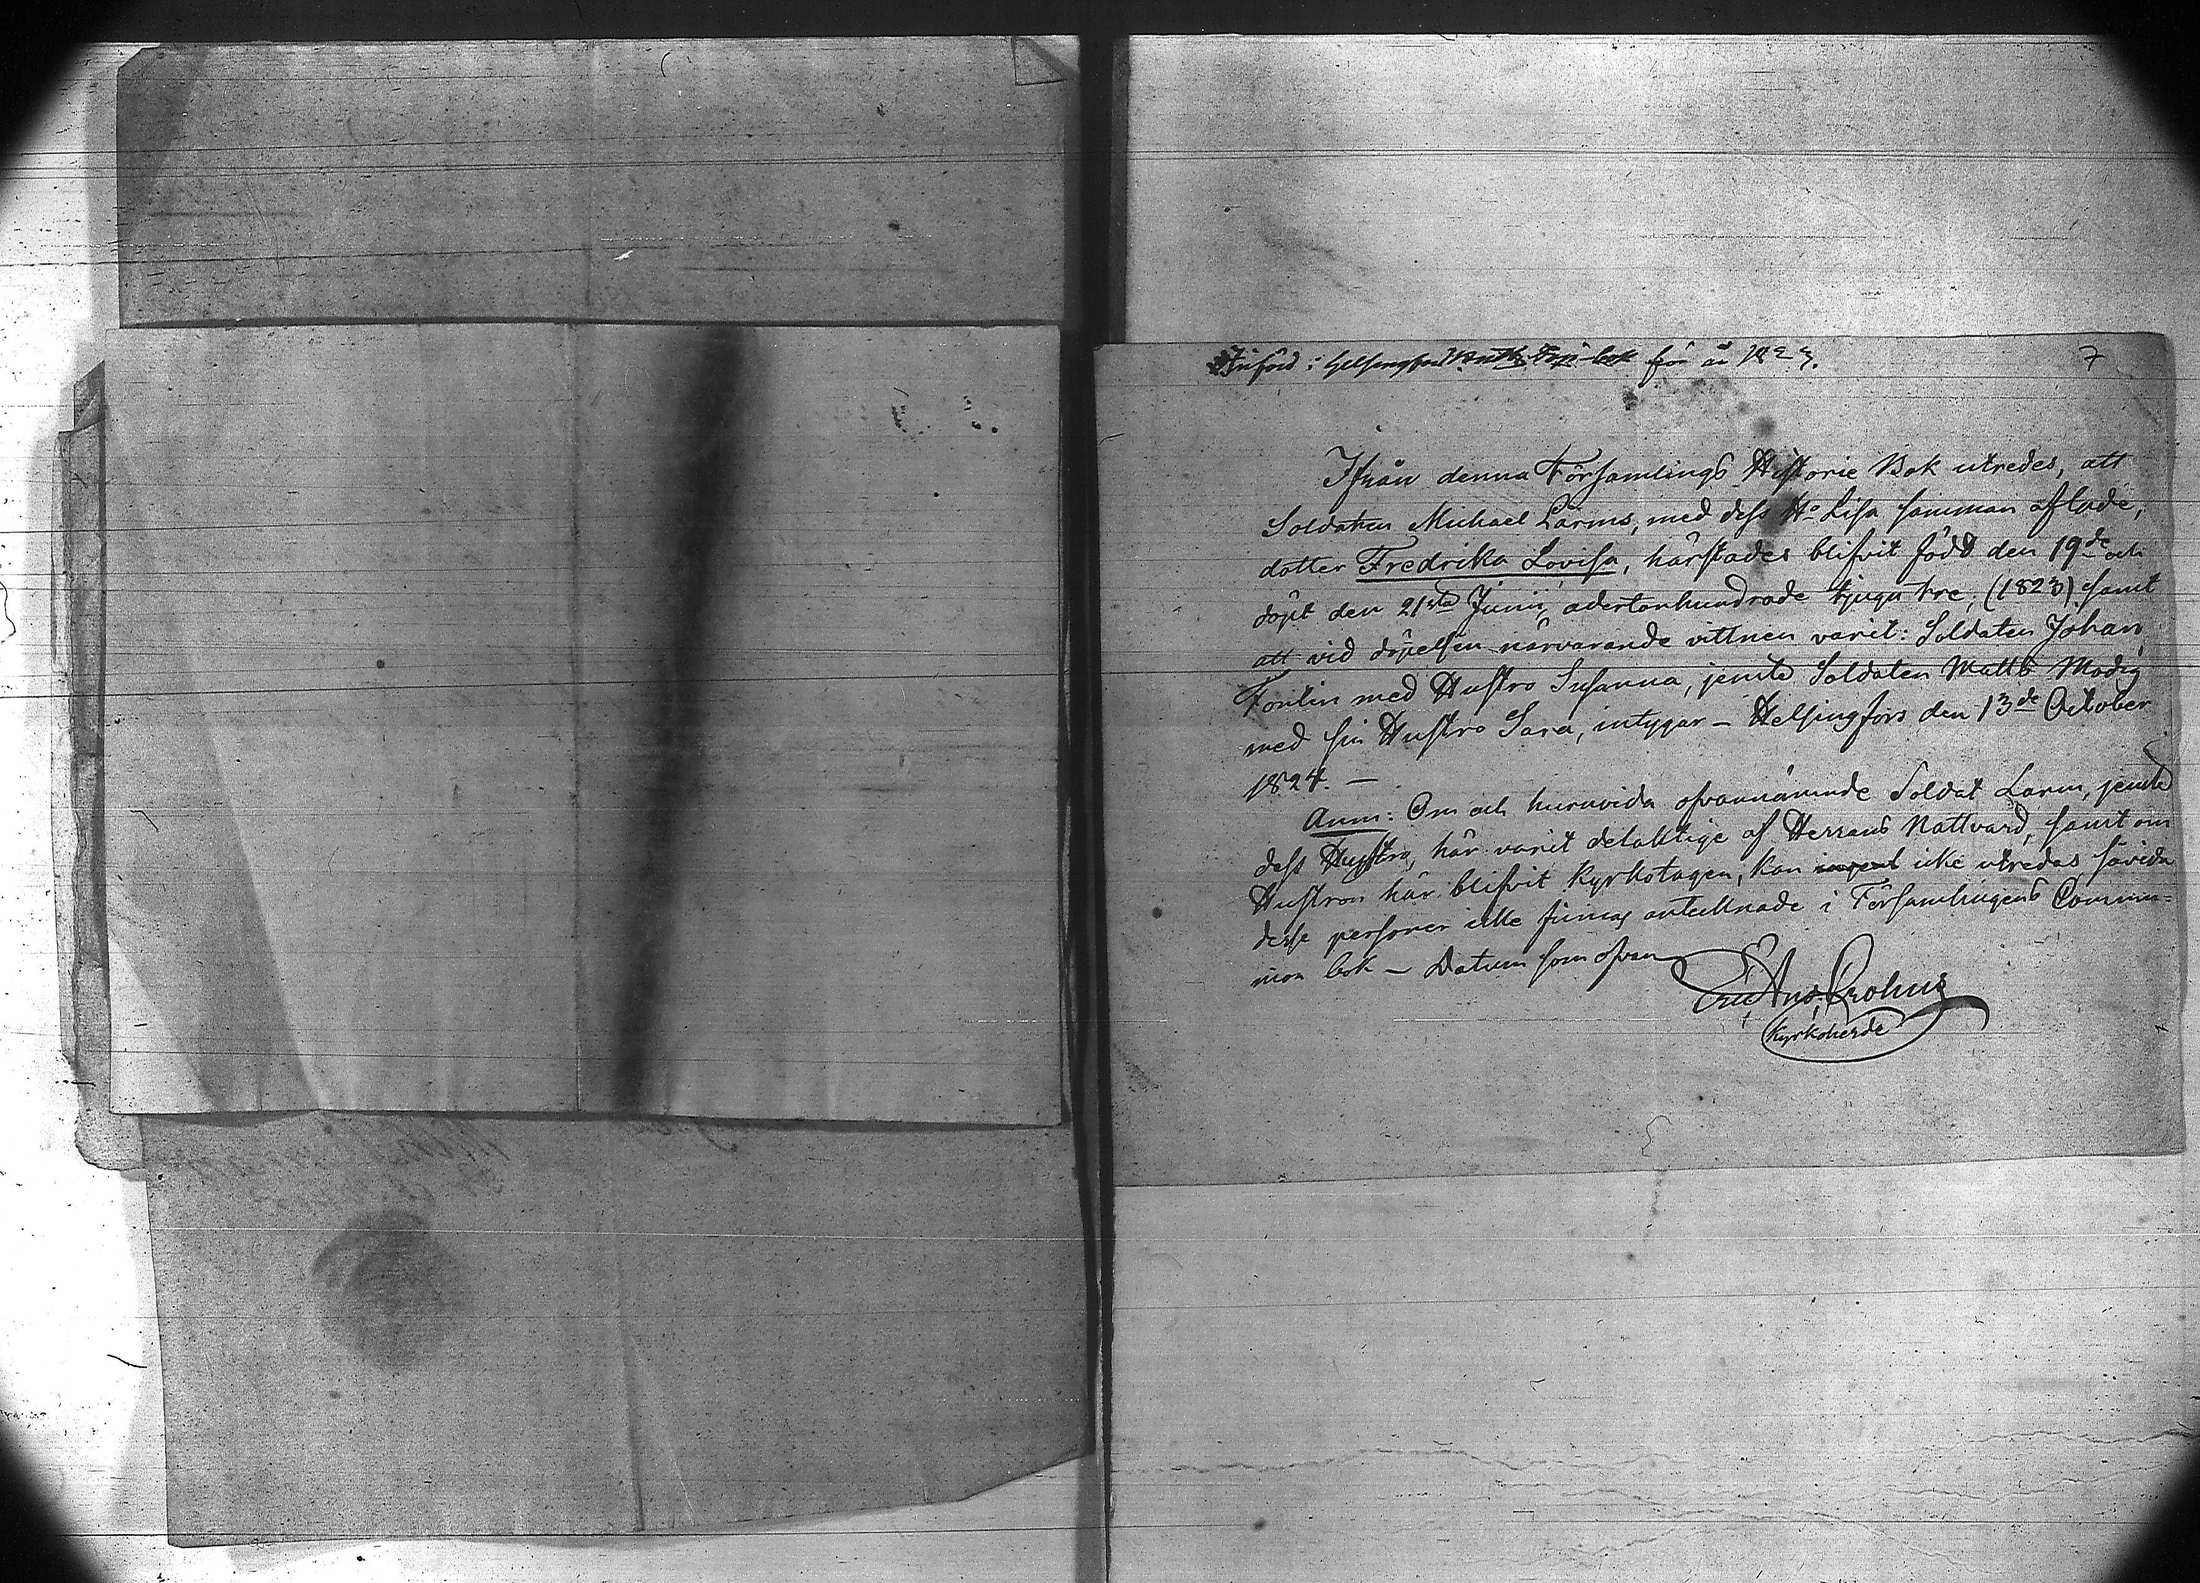 Införd i Helsingfors för år 1823.
7
Ifrån denna Församlings Historie Bok utredes, att
Soldaten Michael Larms, med dess Ho Lisa samman aflade,
dotter Fredrika Lovisa, härstädes blifvit född den 19de och
döpt den 21sta Junii, adertonhundrade tjugu tre, (1823) samt
att vid döpelsen närvarande vittnen varit: Soldaten Johan
Fontin med Hustro Susanna, jemte Soldaten Matts Modig
med sin Hustro Sara, intygar – Helsingfors den 13de October
1824. –
Anm: Om och huruvida ofvannämnde Soldat Larm, jemte
dess Hustro, här varit delaktige af Herrans Nattvard, samt om
Hustron här blifvit kyrkotagen, kan icke utredas, såvida
desse personer icke finnas antecknade i Församlingens Commu=
nion bok – Datum som ofvan
Eric Ans Crohns
Kyrkoherde